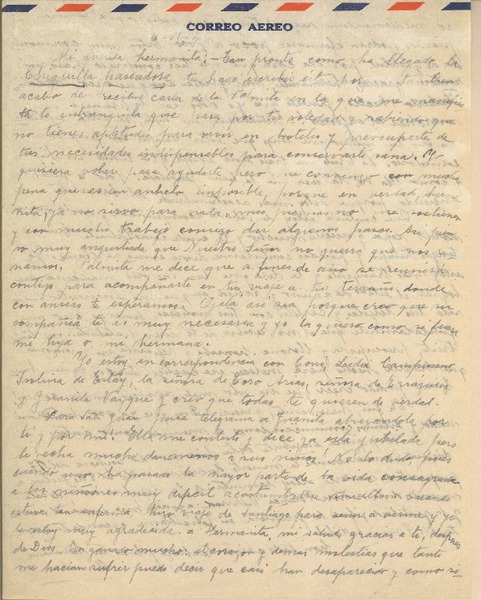 CORREO AEREO
Mi querida hermanita: - Tan pronto como ha llegado la
Chiquilla hago escribir por También
acabo de recibir carta de la Palmita en la que me manifies
ta lo intranquila que pasa por tu soledad y sabiendo que
no tienes aptitudes para vivir en hoteles y preocuparte de
tus necesidades indispensables para conservarte sana. Yo
quisiera volar para ayudarte pero me convenzo con mucha
pena que es un anhelo imposible, porque en verdad her
manita, ya no sirvo para nada, mis piernas no me sostienen
y con mucho trabajo consigo dar algunos pasos.
ro muy angustiada que Nuestro Señor no querrá que nos
namos. Palmita me dice que a fines de año se reunirá
contigo para acompañarte en tu viaje a tu terruño donde
con ansias te esperamos. Ojalá así sea porque creo que su
compañía te es muy necesaria y yo la quiero como si fuera
mi hija o mi hermana.
Yo estoy en correspondencia con
la señora de Toro Arias, señora de Errázuriz
y creo que todas te quieren de verdad.
Para San Juan puse telegrama a Juanita abrazándola por
ti y por mí. Ella me contestó y dice ya está jubilada pero
le echa mucho de menos a sus niños! No lo dudo, pues
cuando uno ha pasado la mayor parte de la vida consagrada
a los niños es muy difícil Cuando
estuve tan enferma hizo viaje de Santiago para venir a verme y yo
le estoy muy agradecida. a Hermanita, mi salud, gracias a ti, después
de Dios, va ganando mucho: el corazón y demás molestias que tanto
me hacían sufrir puedo decir que casi han desaparecido y como si